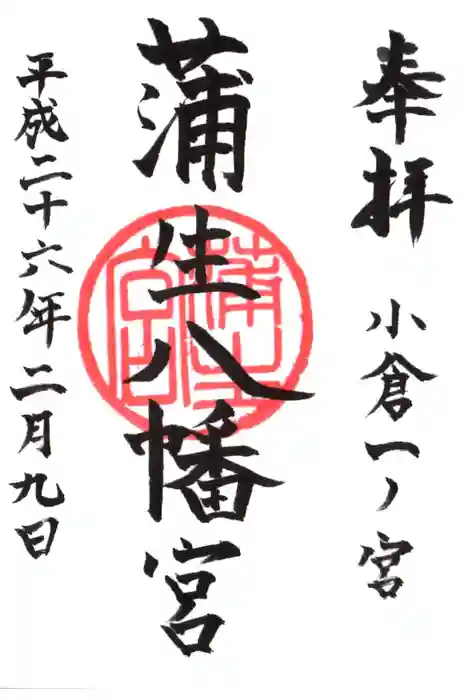 奉拝　小倉一ノ宮
蒲生八幡宮
平成二十六年二月九日